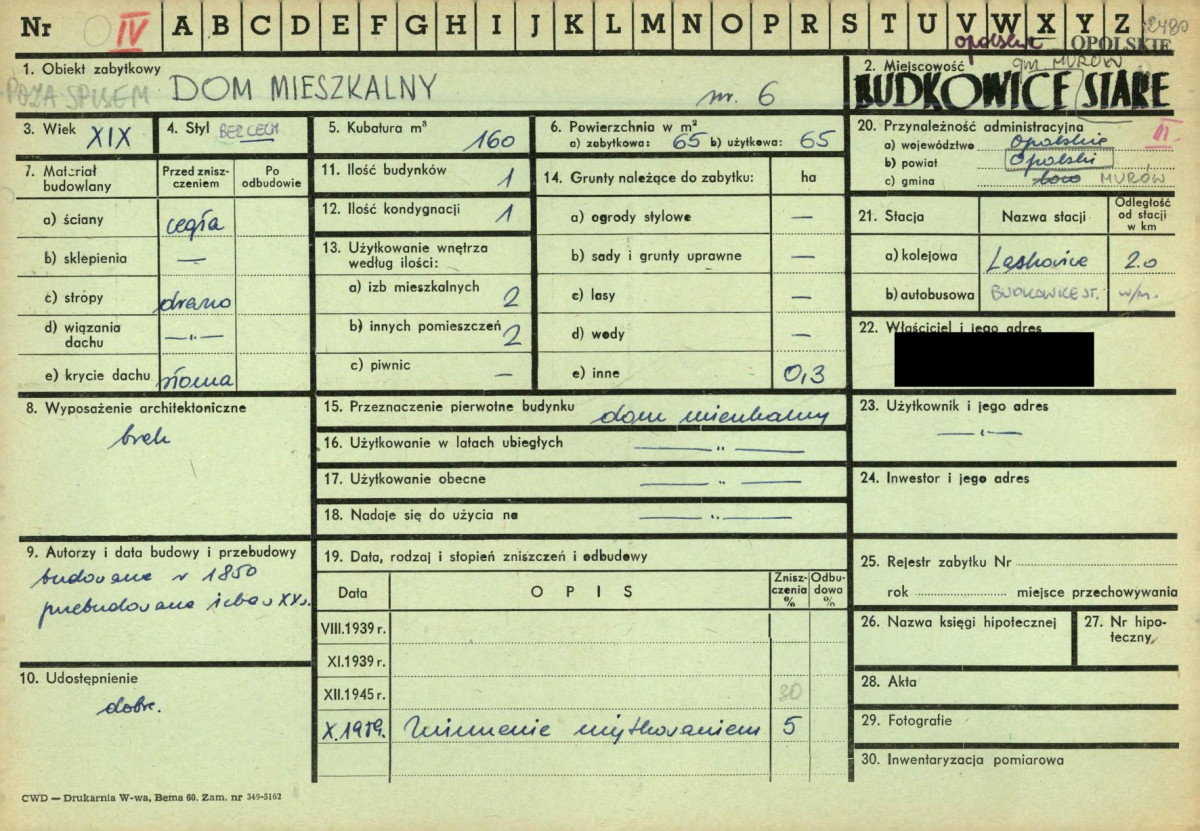 Nr IV A B C D E F G H I J K L M N O P R S T U V W X Y Z 2480
opolskie OPOLSKIE
1. Obiekt zabytkowy
POZA SPISEM DOM MIESZKALNY nr. 6
2. Miejscowość gm MURÓW
BUDKOWICE STARE
3. Wiek XIX
4. Styl BEZ CECH
5. Kubatura m³ 160
6. Powierzchnia w m²
a) zabytkowa: 65 b) użytkowa: 65
7. Materiał budowlany
Przed zniszczeniem
Po odbudowie
a) ściany cegła
b) sklepienia —
c) stropy drewno
d) wiązania dachu —„—
e) krycie dachu słoma
8. Wyposażenie architektoniczne
brak
9. Autorzy i data budowy i przebudowy
budowane w 1850
przebudowana izba w XX w.
10. Udostępnienie
dobre.
11. Ilość budynków 1
12. Ilość kondygnacji 1
13. Użytkowanie wnętrza
według ilości:
a) izb mieszkalnych 2
b) innych pomieszczeń 2
c) piwnic —
14. Grunty należące do zabytku: ha
a) ogrody stylowe —
b) sady i grunty uprawne —
c) lasy —
d) wody —
e) inne 0,3
15. Przeznaczenie pierwotne budynku dom mieszkalny
16. Użytkowanie w latach ubiegłych —„—
17. Użytkowanie obecne —„—
18. Nadaje się do użycia na —„—
19. Data, rodzaj i stopień zniszczeń i odbudowy
Data
O P I S
Zniszczenia %
Odbudowa %
VIII.1939 r.
XI.1939 r.
XII.1945 r. 30
X.1979. Zniszczenie użytkowaniem 5
20. Przynależność administracyjna II.
a) województwo opolskie
b) powiat opolski
c) gmina MURÓW
21. Stacja
Nazwa stacji
Odległość od stacji w km
a) kolejowa Laskowice 20
b) autobusowa BUDKOWICE ST. w/m.
22. Właściciel i jego adres
23. Użytkownik i jego adres
—„—
24. Inwestor i jego adres
25. Rejestr zabytku Nr
rok miejsce przechowywania
26. Nazwa księgi hipotecznej
27. Nr hipoteczny
28. Akta
29. Fotografie
30. Inwentaryzacja pomiarowa
CWD — Drukarnia W-wa, Bema 60. Zam. nr 349-5162